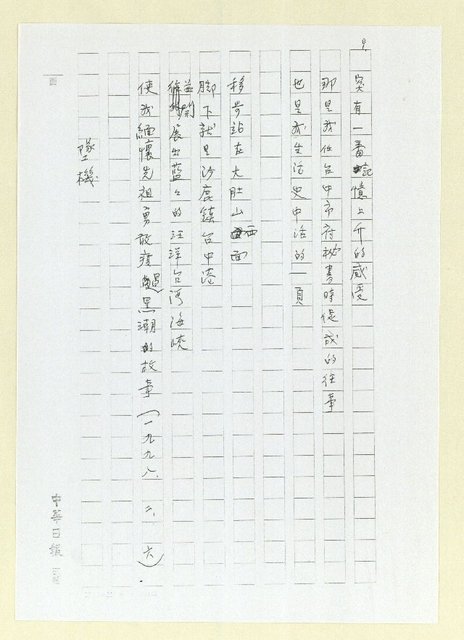 8.
突有一番記憶上升的感受
那是我任台中市府秘書時促成的往事
也是我生活史中活的一頁
移步站在大肚山西面
腳下就是沙鹿鎮台中港
並開展出藍々的汪洋台灣海峽
使我緬懷先祖勇敢渡過黑潮的故事（一九九八、二、六）.
墜機
中華日報